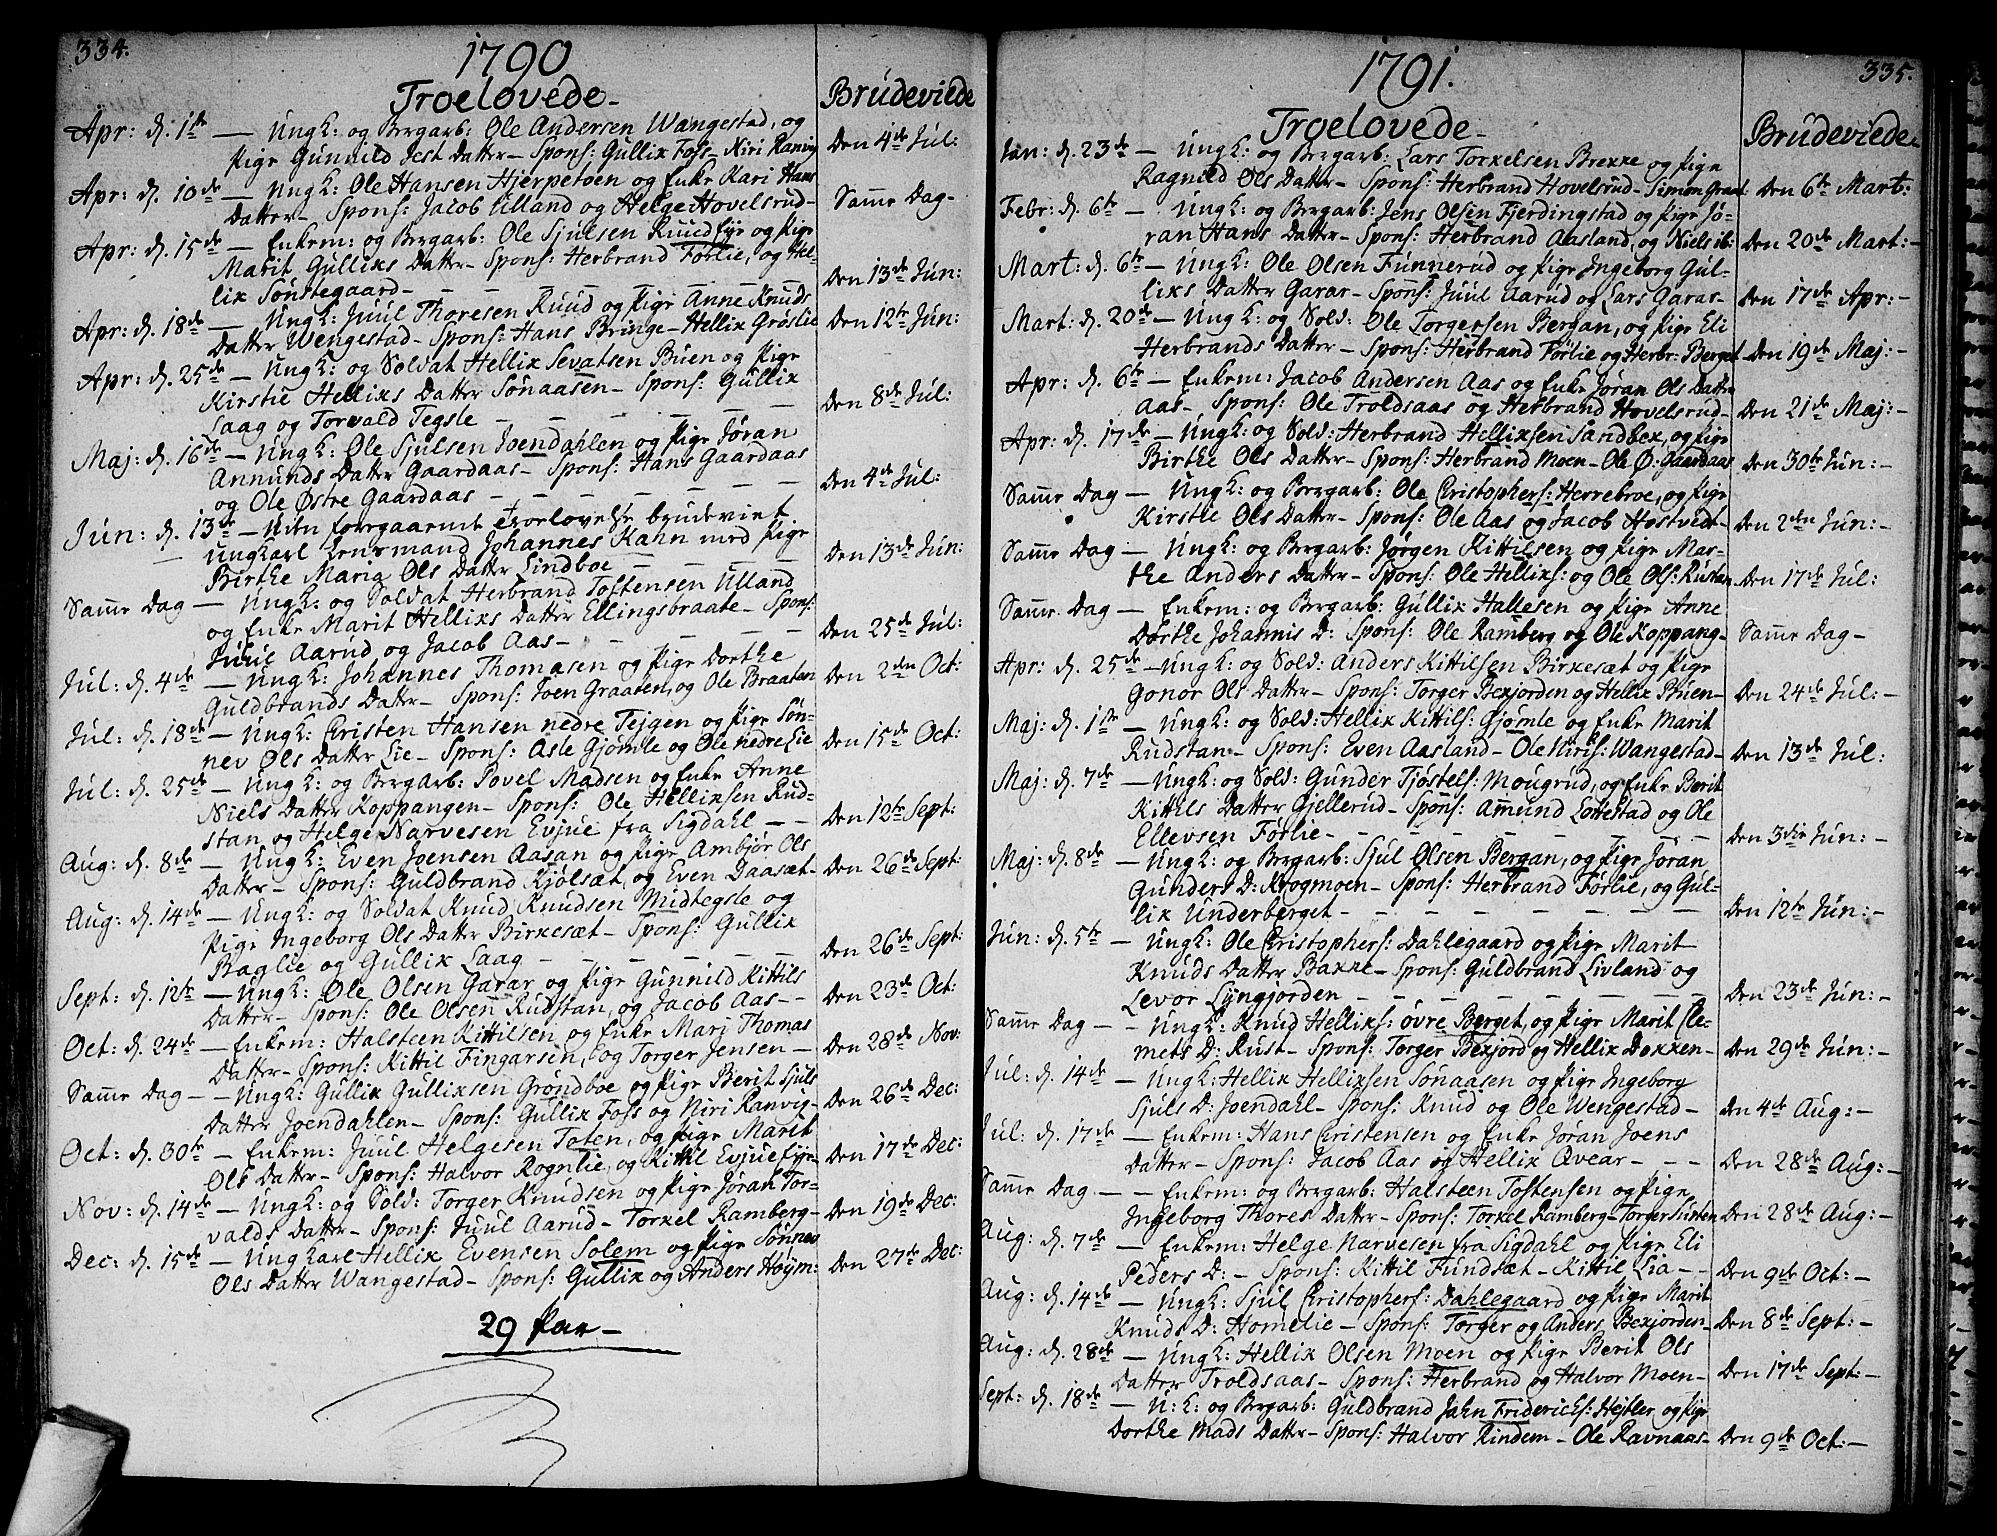 334.
1790
Troelovede- Brudeviede
Apr: d. 1ste — Ungk: og Bergarb: Ole Andersen Wangestad, og
Pige Gunnild Jest Datter- Spons: Gullix Foss- Niri Ranvig Den 4de Jul:
Apr: d. 10de — Ungk: Ole Hansen Hjerpetoen og Enke Kari Hans
Datter- Spons: Jacob Ulland og Helge Hovelsrud- Samme Dag-
Apr: d. 15de — Enkem: og Bergarb: Ole Sjulsen Ruud Eje og Pige
Marit Gullixs Datter- Spons: Herbrand Førlie, og Hel-
lix Sønstegaard- Den 13de Jun:
Apr: d. 18de — Ungk: Juul Thoresen Ruud og Pige Anne Knuds
Datter Wengestad- Spons: Hans Bringe- Hellix Grøslie Den 12te Jun:
Apr: d. 25de — Ungk: og Soldat Hellix Sevatsen Buen og Pige
Kirstie Hellixs Datter Sønaasen- Spons: Gullix
Saag og Torvald Tegsle — Den 8de Jul:
Maj: d. 16de — Ungk: Ole Sjulsen Joendahlen og Pige Jøran
Annunds Datter Gaardaas- Spons: Hans Gaardaas
og Ole Østre Gaardaas — Den 4de Jul:
Jun: d. 13de — Uden foregaaende Troelovelse brudeviet
Ungkarl Lensmand Johannes Kahn med Pige
Birthe Maria Ols Datter Lindboe — Den 13de Jun:
Samme Dag — Ungk: og Soldat Herbrand Tostensen Ulland
og Enke Marit Hellixs Datter Ellingsbraate- Spons:
Juul Aarud og Jacob Aas- Den 25de Jul:
Jul: d. 4de — Ungk: Johannes Thomasen og Pige Dorthe
Guldbrands Datter- Spons: Joen Graaten, og Ole Braatan Den 2den Oct:
Jul: d. 18de — Ungk: Cristen Hansen nedre Tejgen og Pige Søn-
nev Ols Datter Lie- Spons: Asle Gjømle og Ole nedre Lie Den 15de Oct:
Jul: d. 25de — Ungk: og Bergarb: Povel Madsen og Enke Anne
Niels Datter Koppangen- Spons: Ole Hellixsen Rud-
stan og Helge Narvesen Evjue fra Sigdahl — Den 12te Sept:
Aug: d. 8de — Ungk: Even Joensen Aasan og Pige Ambjør Ols
Datter- Spons: Guldbrand Kjølsæt, og Even Daasæt- Den 26de Sept:
Aug: d. 14de — Ungk: og Soldat Knud Knudsen Midtegsle og
Pige Ingeborg Ols Datter Birkesæt- Spons: Gullix
Baglie og Gullix Saag — Den 26de Sept:
Sept: d. 12te — Ungk: Ole Olsen Garar og Pige Gunnild Kittils
Datter- Spons: Ole Olsen Rudstan, og Jacob Aas- Den 23de Oct:
Oct: d. 24de — Enkem: Halsteen Kittilsen og Enke Mari Thomas
Datter- Spons: Kittil Fingarsen, og Torger Jensen — Den 28de Nov:
Samme Dag — Ungk: Gullix Gullixsen Grøndboe og Pige Berit Sjuls
Datter Joendahlen- Spons: Gullix Foss og Niri Ranvig- Den 26de Dec:
Oct: d. 30te — Enkem: Juul Helgesen Toten, og Pige Marit
Ols Datter- Spons: Halvor Rognlie, og Kittil Evjue Eje- Den 17de Dec:
Nov: d. 14de — Ungk: og Sold: Torger Knudsen og Pige Jøran Tor-
valds Datter- Spons: Juul Aarud- Torkel Ramberg- Den 19de Dec:
Dec: d. 15de — Ungkarl Hellix Evensen Solem og Pige Sønnev
Ols Datter Wangestad- Spons: Gullix og Anders Høym: Den 27de Dec:
29 Par-
335.
1791.
Troelovede- Brudeviede-
Jan: d. 23de — Ungk: og Bergarb: Lars Torkelsen Brekke og Pige
Ragnild Ols Datter- Spons: Herbrand Hovelsrud- Simon Graat Den 6te Mart:
Febr: d. 6te — Ungk: og Bergarb: Jens Olsen Fjerdingstad og Pige Jø-
ran Hans Datter- Spons: Herbrand Aasland, og Niels ib: Den 20de Mart:-
Mart: d. 6te — Ungk: Ole Olsen Funnerud og Pige Ingeborg Gul-
lixs Datter Garar- Spons: Juul Aarud og Lars Garas- Den 17de Apr:-
Mart: d. 20de — Ungk: og Sold: Ole Torgersen Bergan, og Pige Eli
Herbrands Datter- Spons: Herbrand Førlie og Herbr: Berget Den 19de Maj:-
Apr: d. 6te — Enkem: Jacob Andersen Aas og Enke Jøran Ols Datter
Aas- Spons: Ole Troldsaas og Herbrand Hovelsrud- Den 21de Maj:-
Apr: d. 17de — Ungk: og Sold: Herbrand Hellixsen Sandbek, og Pige
Birthe Ols Datter- Spons: Herbrand Moen- Ole Ø: Gaardaas Den 30te Jun:-
Samme Dag — Ungk: og Bergarb: Ole Cristophers: Herrebroe, og Pige
Kirstie Ols Datter- Spons: Ole Aas og Jacob Hostvedt- Den 2den Jun:-
Samme Dag — Ungk: og Bergarb: Jørgen Kittilsen og Pige Mar-
the Anders Datter- Spons: Ole Hellixs: og Ole Ols: Rustan Den 17de Jul:
Samme Dag — Enkem: og Bergarb: Gullix Hallesen og Pige Anne
Dorthe Johannis D: Spons: Ole Ramberg og Ole Koppang- Samme Dag-
Apr: d. 25de — Ungk: og Sold: Anders Kittilsen Birkesæt og Pige
Gonor Ols Datter- Spons: Torger Bexjorden og Hellix Buen- Den 24de Jul:-
Maj: d. 1ste — Ungk: og Sold: Hellix Kittils: Gjømle og Enke Marit
Rudstan- Spons: Even Aasland- Ole Niris: Wangestad- Den 13de Jul:
Maj: d. 7de — Ungk: og Sold: Gunder Tjøstels: Mougrud, og Enke Berit
Kittils Datter Gjellerud- Spons: Amund Lottestad og Ole
Ellevsen Førlie- Den 3die Jun:-
Maj: d. 8de — Ungk: og Bergarb: Sjul Olsen Bergan, og Pige Jøran
Gunders D: Krogmoen- Spons: Herbrand Førlie, og Gul-
lix Underberget- Den 12te Jun:-
Jun: d. 5te — Ungk: Ole Cristophers: Dahlegaard og Pige Marit
Knuds Datter Bakke- Spons: Guldbrand Livland og
Levor Lyngjorden — Den 23de Jun:-
Samme Dag — Ungk: Knud Hellixs: øvre Berget, og Pige Marit Cle-
mets D: Rust- Spons: Torger Bexjord og Hellix Dokken- Den 29de Jun:-
Jul: d. 14de — Ungk: Hellix Hellixsen Sønaasen og Pige Ingeborg
Sjuls D: Joendahl- Spons: Knud og Ole Wengestad- Den 4de Aug:-
Jul: d. 17de — Enkem: Hans Cristensen og Enke Jøran Joens
Datter- Spons: Jacob Aas og Hellix Qvear- Den 28de Aug:-
Samme Dag — Enkem: og Bergarb: Halsteen Tostensen og Pige
Ingeborg Thores Datter- Spons: Torkel Ramberg- Torger Susten Den 28de Aug:-
Aug: d. 7de — Enkem: Helge Narvesen fra Sigdahl og Pige Eli
Peders D: - Spons: Kittil Fundsæt- Kittil Lia- Den 9de Oct:-
Aug: d. 14de — Ungk: Sjul Cristophers: Dahlegaard og Pige Marit
Knuds D: Homelie- Spons: Torger og Anders Bexjorden- Den 8de Sept:-
Aug: d. 28de — Ungk: Hellix Olsen Moen og Pige Berit Ols
Datter Troldsaas- Spons: Herbrand og Halvor Moen- Den 17de Sept:-
Sept: d. 18de — U: k: og Bergarb: Guldbrand Jahn Friderichs: Hejtler, og Pige
Dorthe Mads Datter- Spons: Halvor Rindem- Ole Ravnaas- Den 9de Oct:-